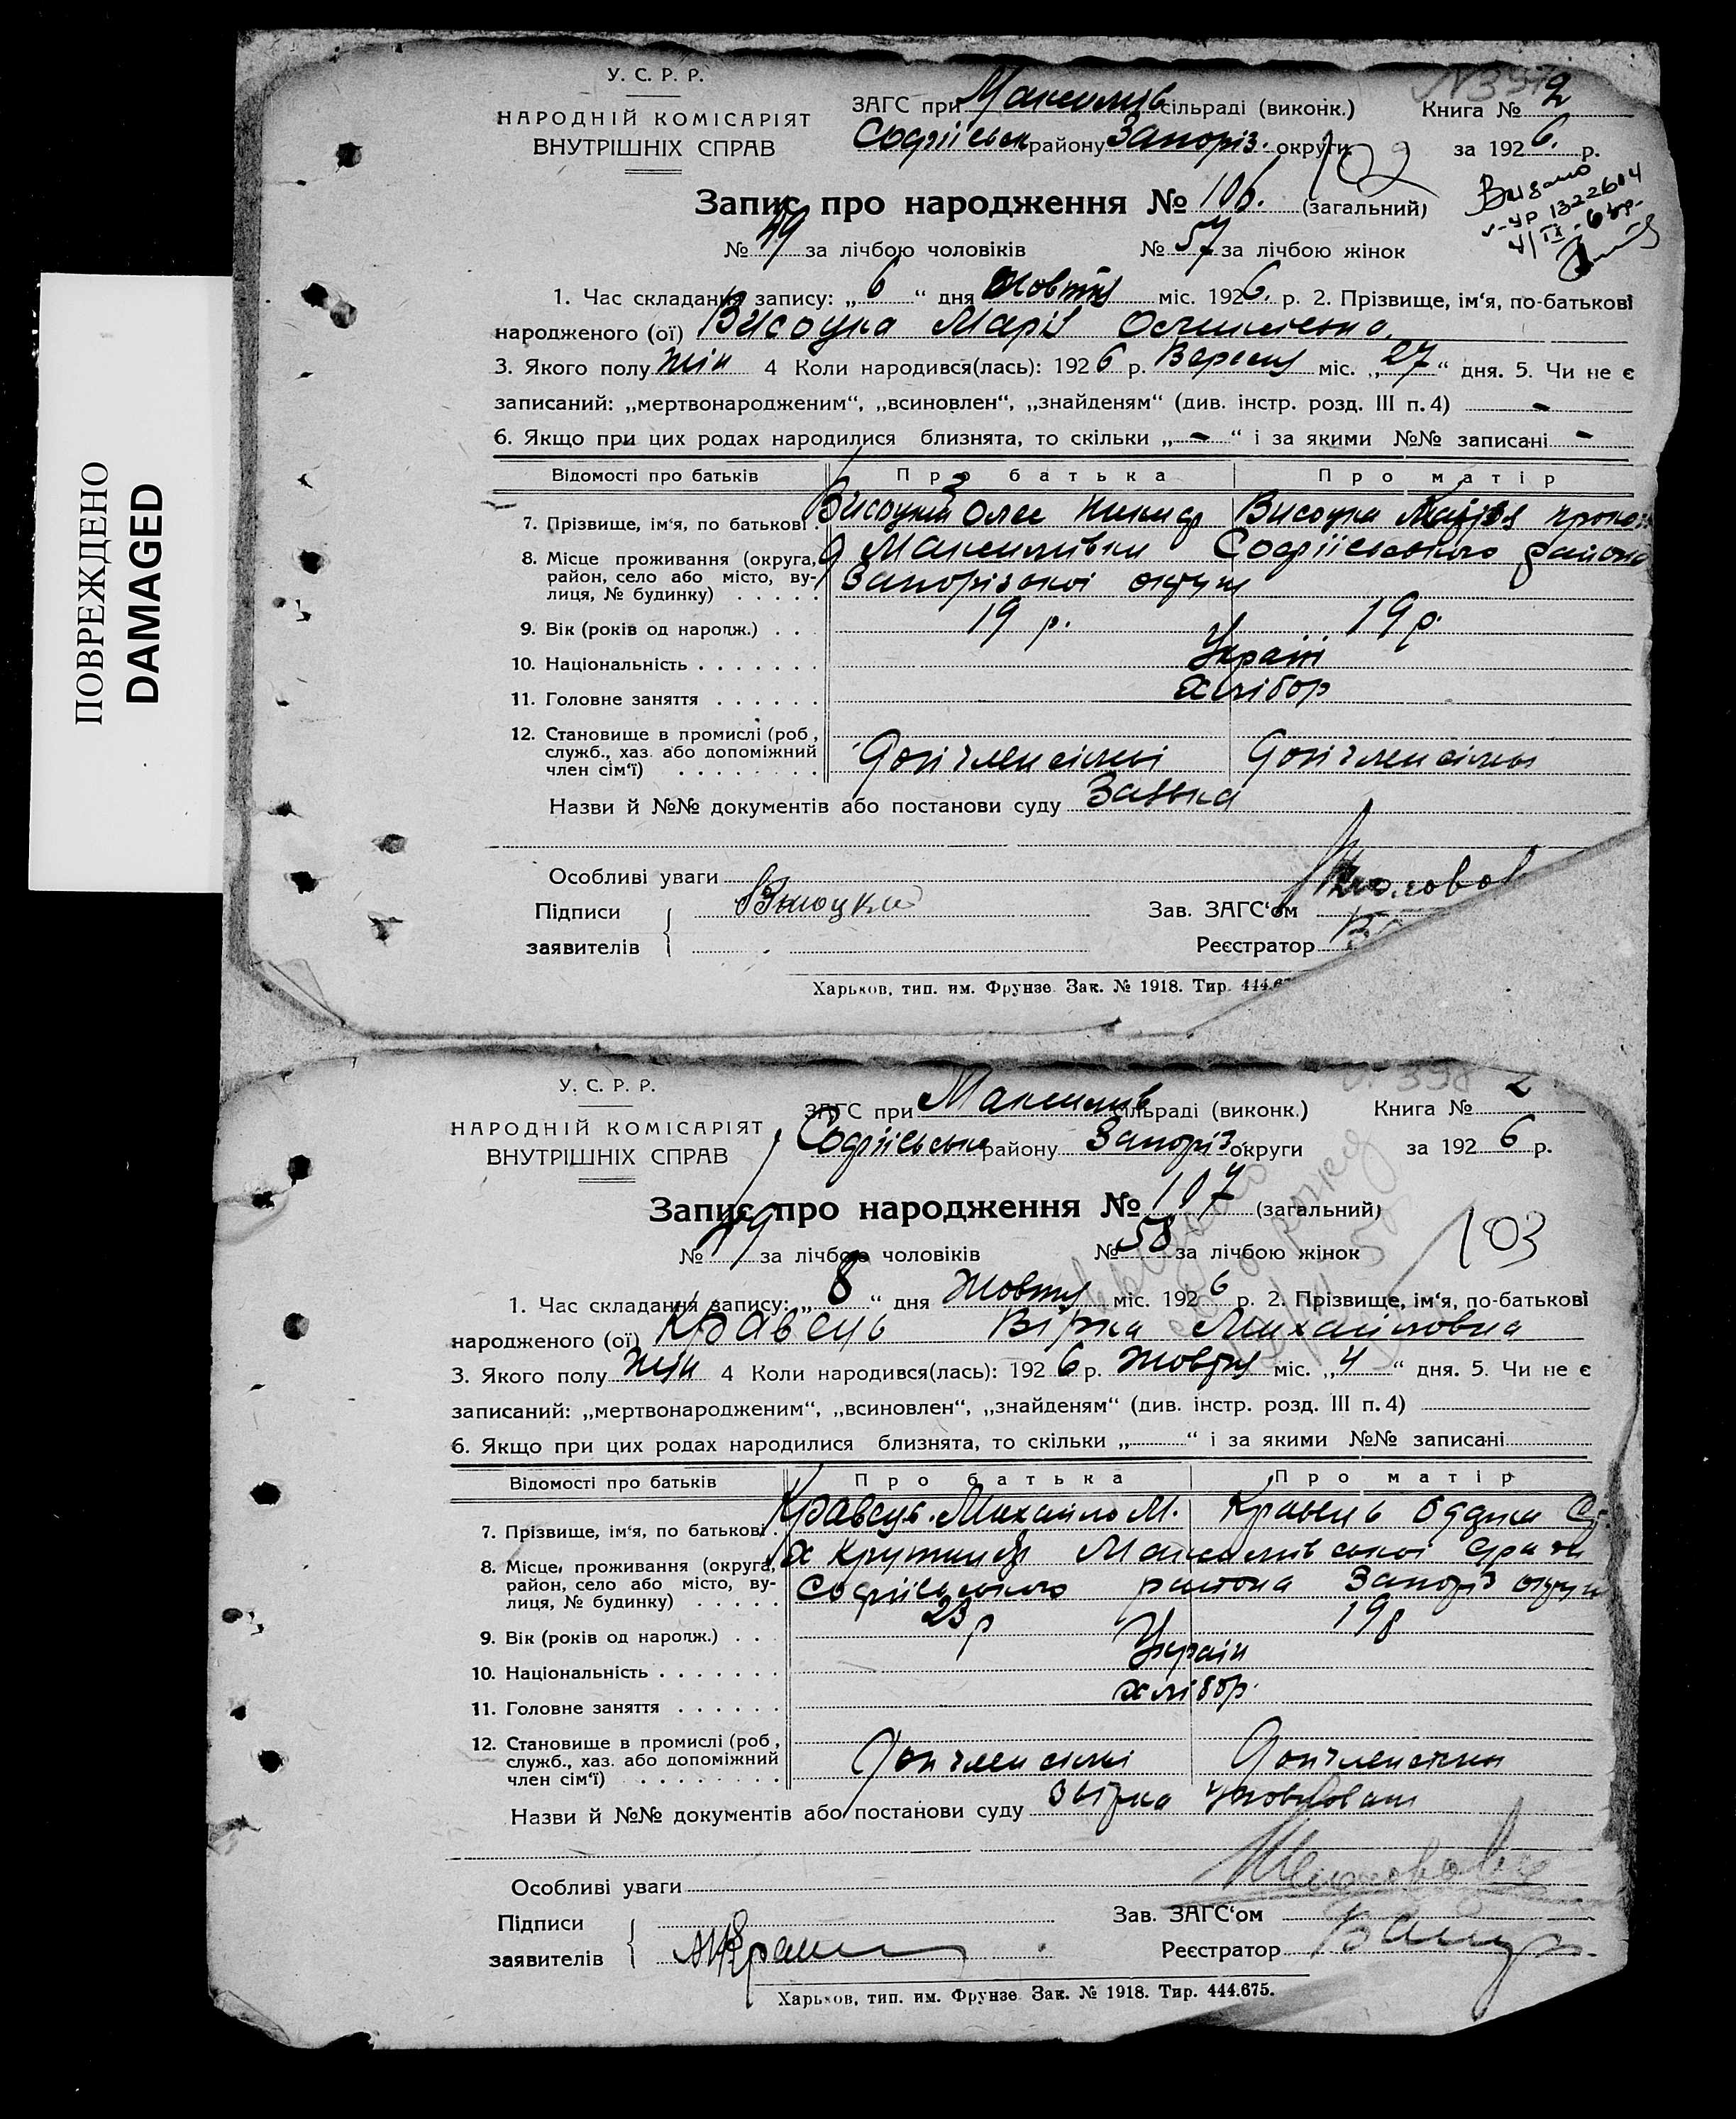 ПОВРЕЖДЕНО
DAMAGED
У. С. Р. Р.
НАРОДНІЙ КОМІСАРІЯТ
ВНУТРІШНІХ СПРАВ
ЗАГС при Максимів сільраді (виконк.) Книга № 2
Софіївськ району Запоріз. округи за 1926. р.
102
Запис про народження № 106. (загальний)
№ 49 за лічбою чоловіків № 57 за лічбою жінок
1. Час складання запису: „6“ дня Жовтня міс. 1926. р. 2. Прізвище, ім'я, по-батькові
народженого (ої) Висоцка Марія
3. Якого полу жін 4 Коли народився(лась): 1926 р. Вересня міс. „27“ дня. 5. Чи не є
записаний: „мертвонародженим“, „всиновлен“, „знайденям“ (див. інстр. розд. III п. 4) -
6. Якщо при цих родах народилися близнята, то скільки „-“ і за якими №№ записані -
Відомості про батьків Про батька Про матір
7. Прізвище, ім'я, по батькові Висоцкий Олек Висоцка Марія
8. Місце проживання (округа, Максимівки Софіївського района
район, село або місто, ву- Запорізької округи
лиця, № будинку) . . . . .
9. Вік (років од народж.) . . 19 р. 19 р.
10. Національність . . . . . . . Україн
11. Головне заняття . . . . . . хлібор
12. Становище в промислі (роб,
служб., хаз. або допоміжний Доп член сімьі Доп член сімьі
член сім'ї) . . . . . . . .
Назви й №№ документів або постанови суду Заявка
Особливі уваги
Підписи Высоцкий Зав. ЗАГС'ом
заявителів Реєстратор
Харьков, тип. им. Фрунзе Зак. № 1918. Тир. 444.6
У. С. Р. Р.
НАРОДНІЙ КОМІСАРІЯТ
ВНУТРІШНІХ СПРАВ
ЗАГС при Максимів сільраді (виконк.) Книга № 2
Софіївське району Запоріз округи за 1926 р.
Запис про народження № 107 (загальний)
№ 49 за лічбою чоловіків № 58 за лічбою жінок
103
1. Час складання запису: „8“ дня Жовтня міс. 1926 р. 2. Прізвище, ім'я, по-батькові
народженого (ої) Кравець Вірка Михайловна
3. Якого полу жін 4 Коли народився(лась): 1926 р. Жовтня міс. „4“ дня. 5. Чи не є
записаний: „мертвонародженим“, „всиновлен“, „знайденям“ (див. інстр. розд. III п. 4)
6. Якщо при цих родах народилися близнята, то скільки „ “ і за якими №№ записані
Відомості про батьків Про батька Про матір
7. Прізвище, ім'я, по батькові . Кравець Михайло М. Кравець
8. Місце проживання (округа, х Максимівської
район, село або місто, ву- Софіївського района Запоріз округи
лиця, № будинку) . . . . .
9. Вік (років од народж.) . . 23 р 19 р
10. Національність . . . . . . . Україн
11. Головне заняття . . . . . . хлібор.
12. Становище в промислі (роб,
служб., хаз. або допоміжний Доп член сімьі Доп член сімьі
член сім'ї) . . . . . . . .
Назви й №№ документів або постанови суду
Особливі уваги
Підписи Зав. ЗАГС'ом
заявителів Реєстратор
Харьков, тип. им. Фрунзе Зак. № 1918. Тир. 444.675.